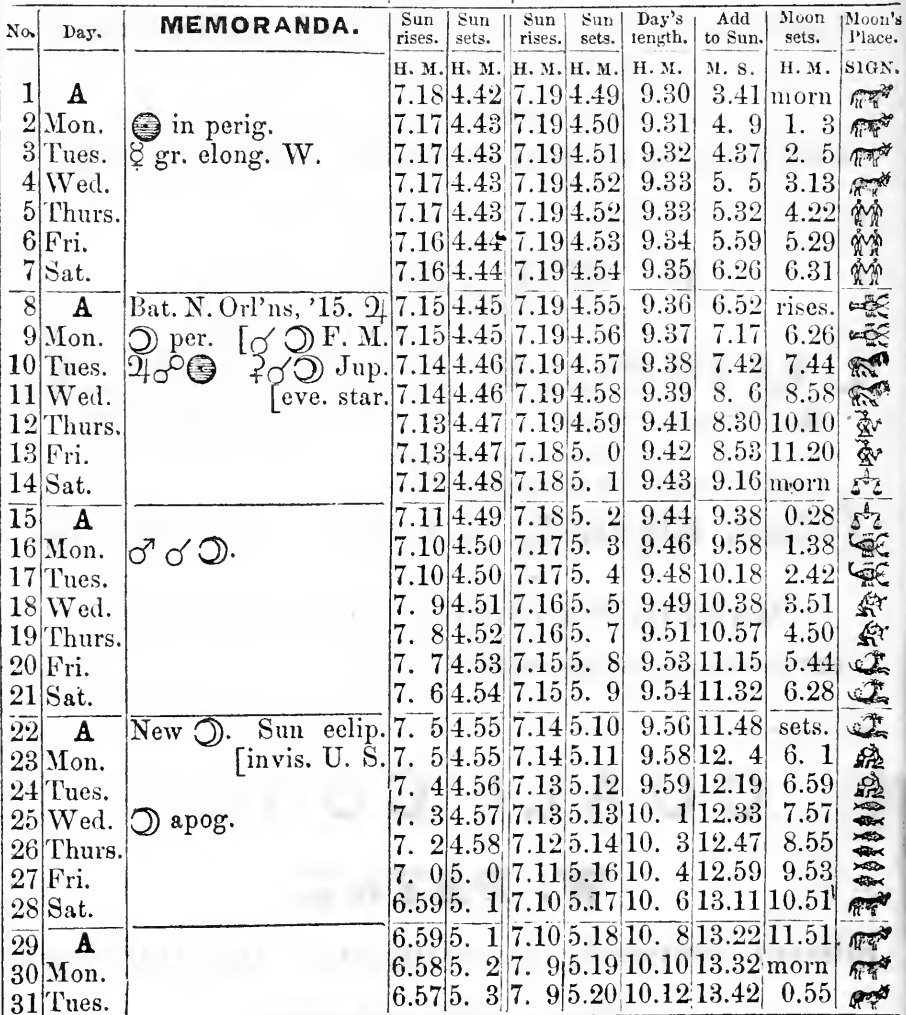 No. Day. MEMORANDA. Sun rises. Sun sets. Sun rises. Sun sets. Day's length. Add to Sun. Moon sets. Moon's Place.
H. M. H. M. H. M. H. M. H. M. M. S. H. M. SIGN.
1 A 7.18 4.42 7.19 4.49 9.30 3.41 morn
2 Mon. in perig. 7.17 4.43 7.19 4.50 9.31 4. 9 1. 3
3 Tues. ☿ gr. elong. W. 7.17 4.43 7.19 4.51 9.32 4.37 2. 5
4 Wed. 7.17 4.43 7.19 4.52 9.33 5. 5 3.13
5 Thurs. 7.17 4.43 7.19 4.52 9.33 5.32 4.22
6 Fri. 7.16 4.44 7.19 4.53 9.34 5.59 5.29
7 Sat. 7.16 4.44 7.19 4.54 9.35 6.26 6.31
8 A Bat. N. Orl'ns, '15. ♃ 7.15 4.45 7.19 4.55 9.36 6.52 rises.
9 Mon. ☽ per. [☌ ☽ F. M. 7.15 4.45 7.19 4.56 9.37 7.17 6.26
10 Tues. ♃☍☉ ♀☌☽ Jup. 7.14 4.46 7.19 4.57 9.38 7.42 7.44
11 Wed. [eve. star. 7.14 4.46 7.19 4.58 9.39 8. 6 8.58
12 Thurs. 7.13 4.47 7.19 4.59 9.41 8.30 10.10
13 Fri. 7.13 4.47 7.18 5. 0 9.42 8.53 11.20
14 Sat. 7.12 4.48 7.18 5. 1 9.43 9.16 morn
15 A 7.11 4.49 7.18 5. 2 9.44 9.38 0.28
16 Mon. ♂ ☌ ☽. 7.10 4.50 7.17 5. 3 9.46 9.58 1.38
17 Tues. 7.10 4.50 7.17 5. 4 9.48 10.18 2.42
18 Wed. 7. 9 4.51 7.16 5. 5 9.49 10.38 3.51
19 Thurs. 7. 8 4.52 7.16 5. 7 9.51 10.57 4.50
20 Fri. 7. 7 4.53 7.15 5. 8 9.53 11.15 5.44
21 Sat. 7. 6 4.54 7.15 5. 9 9.54 11.32 6.28
22 A New ☽. Sun eclip. 7. 5 4.55 7.14 5.10 9.56 11.48 sets.
23 Mon. [invis. U. S. 7. 5 4.55 7.14 5.11 9.58 12. 4 6. 1
24 Tues. 7. 4 4.56 7.13 5.12 9.59 12.19 6.59
25 Wed. ☽ apog. 7. 3 4.57 7.13 5.13 10. 1 12.33 7.57
26 Thurs. 7. 2 4.58 7.12 5.14 10. 3 12.47 8.55
27 Fri. 7. 0 5. 0 7.11 5.16 10. 4 12.59 9.53
28 Sat. 6.59 5. 1 7.10 5.17 10. 6 13.11 10.51
29 A 6.59 5. 1 7.10 5.18 10. 8 13.22 11.51
30 Mon. 6.58 5. 2 7. 9 5.19 10.10 13.32 morn
31 Tues. 6.57 5. 3 7. 9 5.20 10.12 13.42 0.55